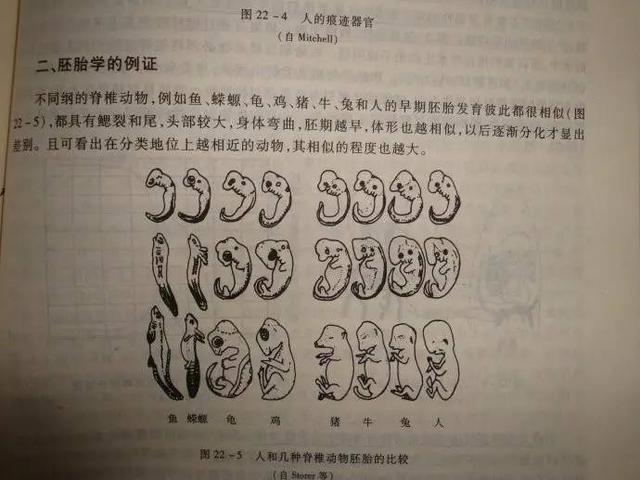 图 22-4 人的痕迹器官
(自 Mitchell)
二、胚胎学的例证
不同纲的脊椎动物,例如鱼、蝾螈、龟、鸡、猪、牛、兔和人的早期胚胎发育彼此都很相似(图
22-5),都具有鳃裂和尾,头部较大,身体弯曲,胚期越早,体形也越相似,以后逐渐分化才显出
差别。且可看出在分类地位上越相近的动物,其相似的程度也越大。
鱼 蝾螈 龟 鸡 猪 牛 兔 人
图 22-5 人和几种脊椎动物胚胎的比较
(自 Storer 等)